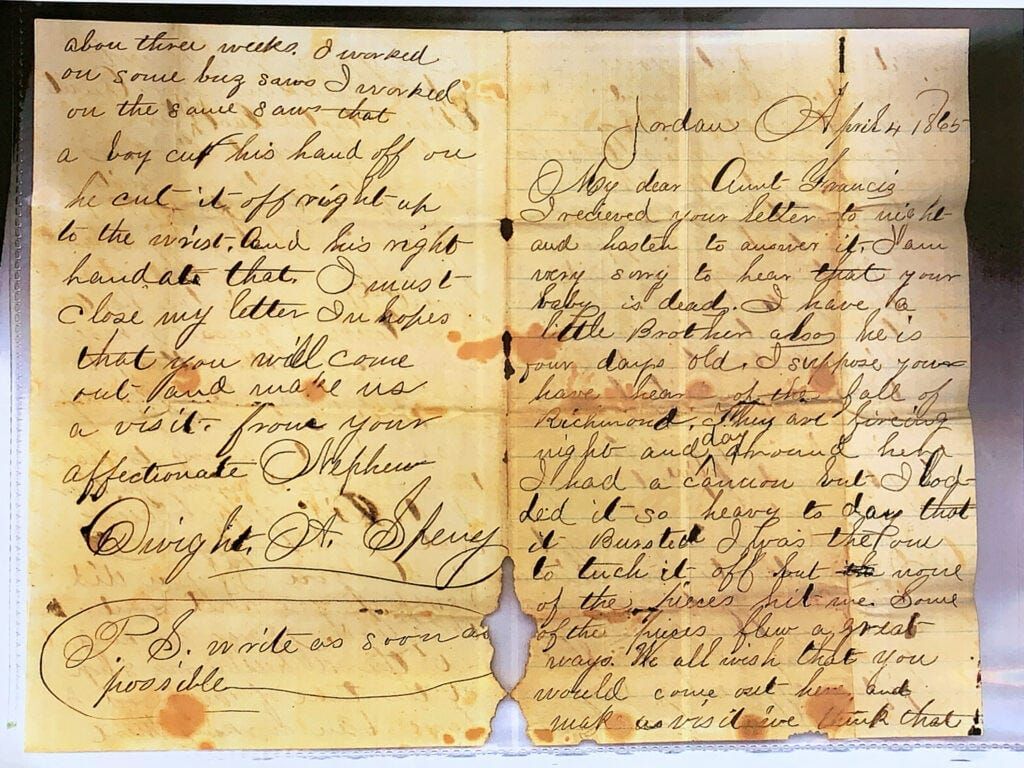 Jordan April 4 1865
My dear Aunt Francis
I recieved your letter to night
and hasten to answer it. I am
very sorry to hear that your
baby is dead. I have a
little Brother also he is
four days old. I suppose you
have hear of the fall of
Richmond. They are fireing
night and day around here
I had a cannon but I lod-
ded it so heavy to day that
it Bursted I was the one
to tuch it off but none
of the pieces hit me. Some
of the pieces flew a great
ways. We all wish that you
would come out here and
mak us visit we think that
abou three weeks. I worked
on some buz saws I worked
on the same saw that
a boy cut his hand off on
he cut it off right up
to the wrist. And his right
hand at that. I must
close my letter In hopes
that you will come
out and make us
a visit. from your
affectionate Nephew
Dwight. A.
P. S. write as soon as
possible